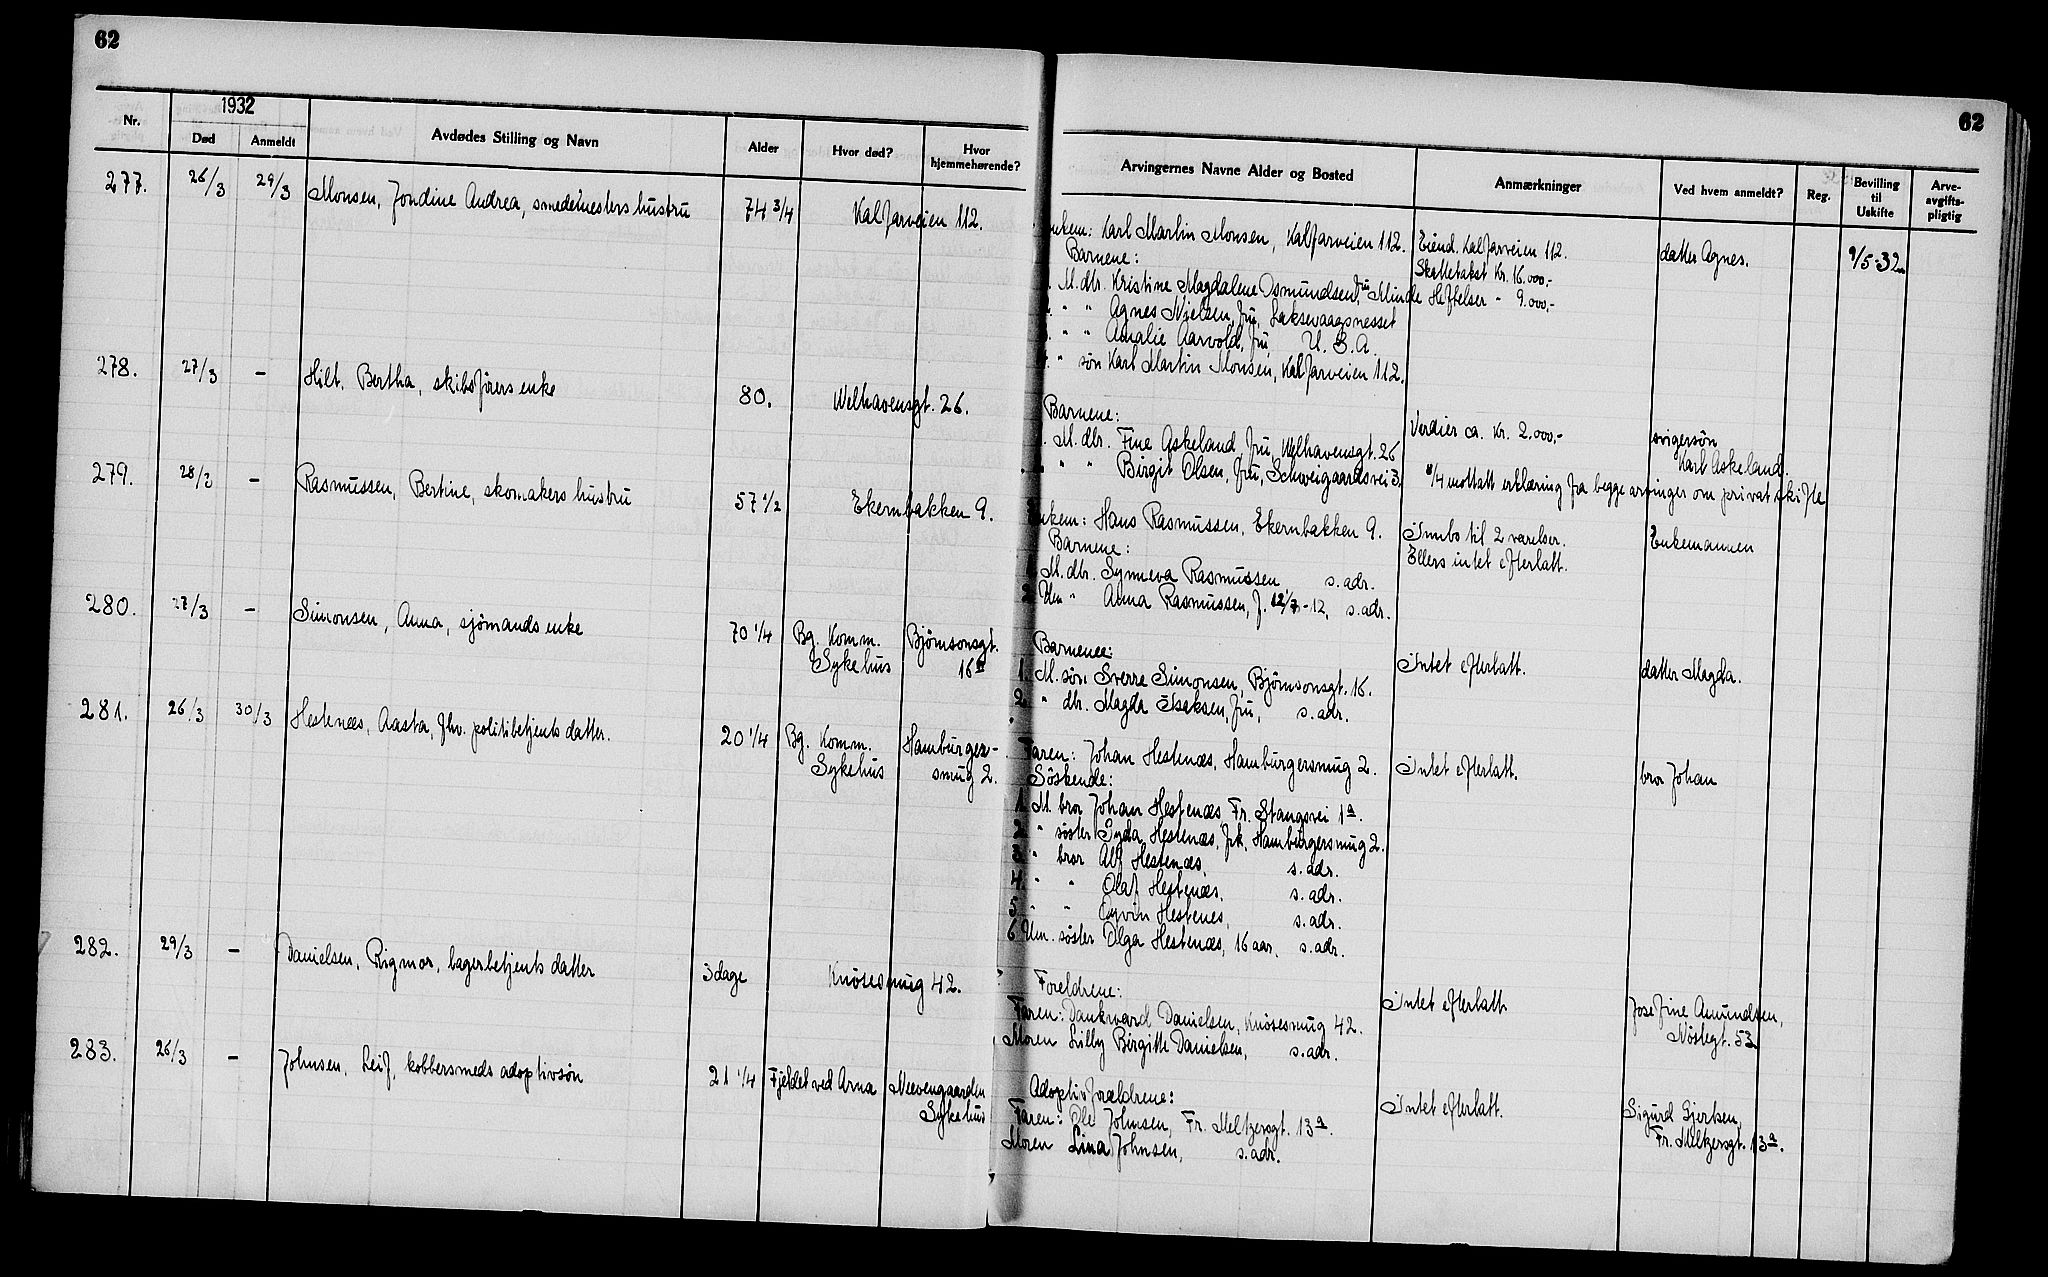 62
62
1932
Nr. Død Anmeldt Avdødes Stilling og Navn Alder Hvor død? Hvor hjemmehørende? Arvingernes Navne Alder og Bosted Anmærkninger Ved hvem anmeldt? Reg. Bevilling til Uskifte Arve-avgifts-pligtig
277. 26/3 29/3 Monsen, Jondine Andrea, smedemesters hustru 74 3/4 Kalfarveien 112.
Enkem: Karl Martin Monsen, Kalfarveien 112. Eiend. Kalfarveien 112. datter Agnes. 9/5-32
Barnene: Skattetakst Kr. 16.000,-
M. dtr. Kristine Magdalene Osmundsen, fru, Minde Heftelser - 9.000,-
" " Agnes Nielsen, fru, Laksevaagsnesset
" " Amalie Aarvold, fru, U. S. A.
" søn Karl Martin Monsen, Kalfarveien 112.
278. 27/3 - Hilt, Bertha, skibsførers enke 80. Welhavensgt. 26.
Barnene: Verdier ca. Kr. 2.000,- svigersøn
M. dtr. Fine Askeland, fru, Welhavensgt. 26 Karl Askeland.
" " Birgit Olsen, fru, Schweigaardsvei 3. 8/4 mottatt erklæring fra begge arvinger om privat skifte
279. 28/3 - Rasmussen, Bertine, skomakers hustru 57 1/2 Ekernbakken 9.
Enkem: Hans Rasmussen, Ekernbakken 9. Innbo til 2 værelser. Enkemannen
Barnene: Ellers intet efterlatt.
M. dtr. Synneva Rasmussen s. adr.
2. Um " Anna Rasmussen, f. 12/7-12, s. adr.
280. 27/3 - Simonsen, Anna, sjømands enke 70 1/4 Bg. Komm. Sykehus Bjørnsonsgt. 16a
Barnene: Intet efterlatt. datter Magda.
1. M. søn Sverre Simonsen, Bjørnsonsgt. 16.
2. " dtr. Magda Isaksen, fru, s. adr.
281. 26/3 30/3 Hestenæs, Aasta, fhv. politibetjents datter. 20 1/4 Bg. Komm. Sykehus Hamburger-smug 2.
Faren: Johan Hestenæs, Hamburgersmug 2. Intet efterlatt. bror Johan
Søskende:
1. M. bror Johan Hestenæs, Fr. Stangsvei 1a.
2. " søster Syda Hestenæs, frk. Hamburgersmug 2.
3. " bror Alf Hestenæs, s. adr.
4. " " Olaf Hestenæs, s. adr.
5. " " Øyvin Hestenes, s. adr.
6. Um. søster Olga Hestenæs, 16 aar, s. adr.
282. 29/3 - Danielsen, Rigmor, lagerbetjents datter 3 dage Knøsesmug 42.
Foreldrene: Intet efterlatt. Josefine Amundsen,
Faren: Dankward Danielsen, Knøsesmug 42. Nøstegt. 53
Moren Lilly Birgitte Danielsen, s. adr.
283. 26/3 - Johnsen, Leif, kobbersmeds adoptivsøn 21 1/4 Fjeldet ved Arna Neevengaarden Sykehus
Adoptivforældrene: Intet efterlatt. Sigurd Gjertsen,
Faren: Ole Johnsen, Fr. Meltzersgt. 13a. Fr. Meltzersgt. 13a.
Moren Lina Johnsen, s. adr.